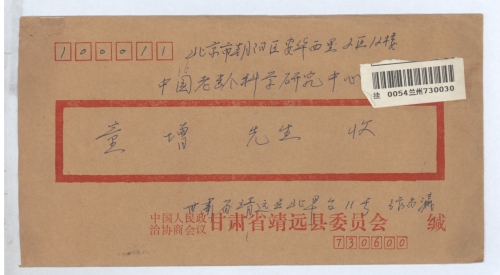 100011
北京市朝阳区安华西里2区12楼
中国老龄科学研究中心
挂 0054兰州730030
童增 先生 收
甘肃省靖远县北旱台11号
中国人民政治协商会议 甘肃省靖远县委员会 缄
730600